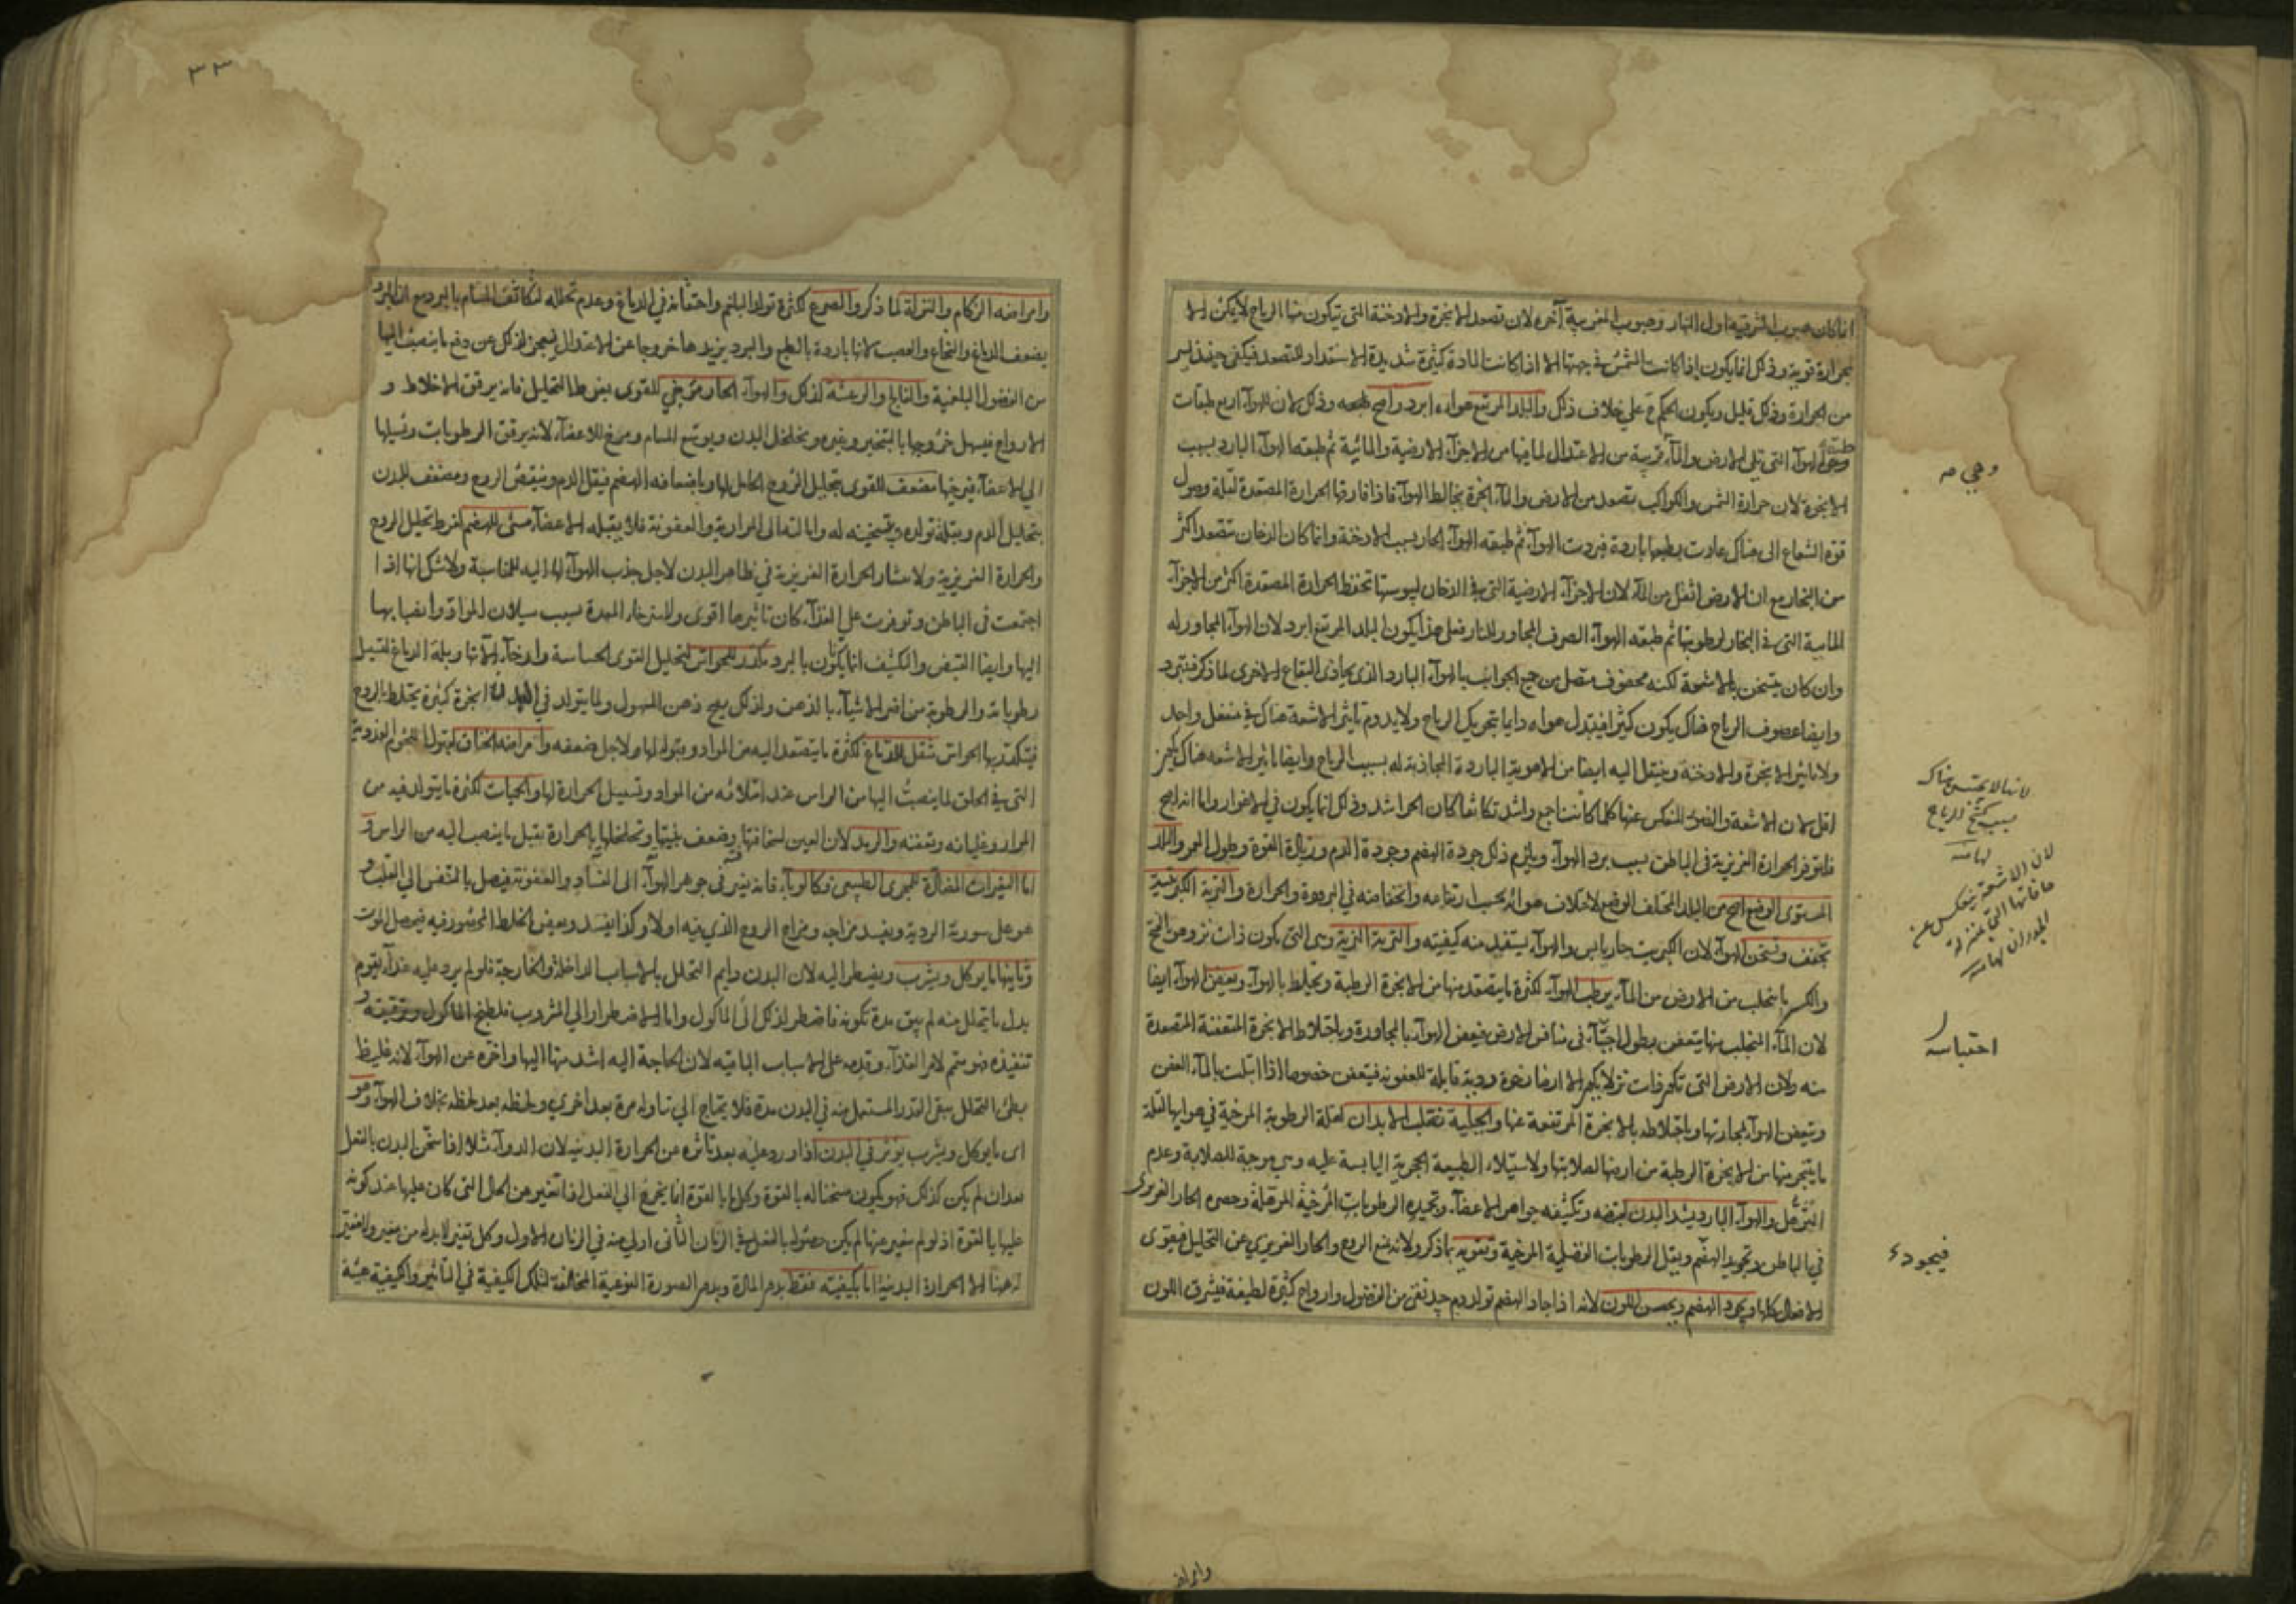 انما كان هبوب المشرقية اول النهار وهبوب المغربية آخره لان تصعد الابخرة والادخنة التي تتكون منها الرياح لا يمكن الا
بحرارة قوية وذلك انما يكون اذا كانت الشمس في جهتها الا اذا كانت المادة كثيرة شديدة الاستعداد للتصعد فيكفي حينئذ
من الحرارة وذلك قليل ويكون الحكم ح على خلاف ذلك والبلد المرتفع هواءه ابرد واصح وذلك لان للهواء اربع طبقات
طبقة الهوآء التي تلي الارض والمآء قريبة من الاعتدال لما فيها من الاجزآء الارضية والمائية ثم طبقة الهوآء البارد بسبب
الابخرة لان حرارة الشمس والكواكب تصعد من الارض والمآء ابخرة تخالط الهوآء فاذا فارقها الحرارة المصعدة لقلة وصول
قوة الشعاع الى هناك عادت بطبعها باردة فبردت الهوآء ثم طبقة الهوآء الحار بسبب الادخنة وانما كان الدخان متصعدا اكثر
من البخار مع ان الارض اثقل من المآء لان الاجزآء الارضية التي في الدخان ليبوستها تحفظ الحرارة المصعدة اكثر من الاجزآء
المايية التي في البخار لرطوبتها ثم طبقة الهوآء الصرف المجاور للنار فعلى هذا يكون البلد المرتفع ابرد لان الهوآء المجاور له
وان كان يتسخن بالاشعة لكنه محفوف متصل من جميع الجوانب بالهوآء البارد الذي يحاذي البقاع الاخرى لما ذكر فيتبرد
وايضا عصوف الرياح هناك يكون كثيرا فيتبدل هواءه دايما بتحريك الرياح ولا يدوم تاثير الاشعة هناك في منفعل واحد
ولا تاثير الابخرة والادخنة وينتقل اليه ايضا من الاهوية الباردة المحاذية له بسبب الرياح وايضا تاثير الاشعة هناك يكون
اقل لان الاشعة والضوء المنعكس عنها كلما كانت اجمع واشد تكاثفا كان الحر اشد وذلك انما يكون في الاغوار واما انه اصح
فلتوفر الحرارة الغريزية في الباطن بسبب برد الهوآء ويلزم ذلك جودة الهضم وجودة الدم وزيادة القوة وطول العمر والبلد
المستوى الوضع اصح من البلد المختلف الوضع لاختلاف هوائه بحسب ارتفاعه وانخفاضه في البرودة والحرارة والتربة الكبريتية
تجفف وتسخن الهوآء لان الكبريت حار يابس والهوآء يستفيد منه كيفيته والتربة النزية وهي التي يكون ذات نز وهو بالفتح
والكسر ما يتحلب من الارض من المآء يرطب الهوآء لكثرة ما يتصعد منها من الابخرة الرطبة ويختلط بالهوآء ويعفن الهوآء ايضا
لان المآء المتحلب منها يتعفن بطول في منافس الارض فيعفن الهوآء بالمجاورة وباختلاط الابخرة المتعفنة المتصعدة
منه ولان الارض التي تكون ذات نز لا يكون الا ارضا رخوة ردية قابلة للعفونة فيتعفن خصوصا اذا ابتلت بالمآء العفن
ويتعفن الهوآء بمجاورتها وباختلاطه بالابخرة المرتفعة عنها والجبلية تصلب الابدان لقلة الرطوبة المرخية في هوايها لقلة
ما يتبخر منها من الابخرة الرطبة من ارضها لصلابتها ولاستيلاء الطبيعة الحجرية اليابسة عليه وهي موجبة للصلابة وعدم
الترهل والهوآء البارد يشد البدن لقبضه وتكثيفه جواهر الاعضآء وتجميده الرطوبات المرخية المرهلة وحصره الحار الغريزى
في الباطن ويجود الهضم ويقل الرطوبات الفضلية المرخية وتقويه بما ذكر ولانه يمنع الروح والحار الغريزي عن التحليل فيقوى
الافعال كلها ويجود الهضم ويحسن اللون لانه اذا جاد الهضم تولد دم جيد نقي من الفضول وارواح كثيرة لطيفة فيشرق اللون
وهي صه
لانها لا تحتبس هناك
بسبب كثرة الرياح
لان الاشعة ينعكس عن
حافاتها التي بمنزلة
الجدران لها
احتباسه
فيجوده
وامراضه
٣٣
وامراضه الزكام والنزلة لما ذكر والصرع لكثرة تولد البلغم واحتقانه في الدماغ وعدم تحلله لتكاثف المسام بالبرد مع ان البرد
يضعف الدماغ والنخاع والعصب لانها باردة بالطبع والبرد يزيدها خروجا عن الاعتدال فيعجز لذلك عن دفع ما ينصب اليها
من الفضول البلغمية والفالج والرعشة لذلك والهوآء الحار مرخي للقوى بفرط التحليل فانه يرقق الاخلاط و
الارواح فيسهل خروجها بالتبخير وغيره ويخلخل البدن ويوسع المسام ومرخ للاعضآء لانه يرقق الرطوبات ويسيلها
الى الاعضآء فيرخيها مضعف للقوى بتحليل الروح الحامل لها وباضعافه الهضم فيقل الدم وينقص الروح ومضعف للبدن
بتحليل الدم وبقلة تولده وبتسخينه له واحالته الى المرارية والعفونة فلا يقبله الاعضآء مسئ للهضم لفرط تحليل الروح
والحرارة الغريزية ولانتشار الحرارة الغريزية في ظاهر البدن لاجل جذب الهوآء لها اليه للمناسبة ولا شك انها اذا
اجتمعت في الباطن وتوفرت على الغذآء كان تاثيرها اقوى ولاسترخاء المعدة بسبب سيلان المواد وانصبابها
اليها وايضا القبض والكثيف انما يكون بالبرد مكدر للحواس لتحليل القوى الحساسة وارخآء آلاتها وبلة الدماغ لتسيل
رطوباته والرطوبة من اضر الاشيآء بالذهن ولذلك يقبح ذهن المسهول ولما يتولد في البدن ابخرة كثيرة يختلط بالروح
فيتكدر بها الحواس مثقل للدماغ لكثرة ما يتصعد اليه من المواد وقبوله لها ولاجل ضعفه وامراضه الخناق لقبول اللحوم الغددية
التي في الحلق لما ينصب اليها من الراس عند امتلائه من المواد وتسييل الحرارة لها والحميات لكثرة ما يتولد فيه من
المرار وغليانه وتعفنه والرمد لان العين لسخافتها وضعف بنيتها وتخلخلها بالحرارة يقبل ما ينصب اليه من الراس و
اما التغيرات المضادة للمجرى الطبيعي فكالوبآء فانه تغير في جوهر الهوآء الى الفساد والعفونة فيصل بالتنفس الى القلب و
هو على سورية الردية ويفسد مزاجه ومزاج الروح الذي فيه اولا وكذا يفسد ويعفن الخلط المحصور فيه فيحصل الموت
وثانيها ما يوكل ويشرب ويضطر اليه لان البدن دايم التحلل بالاسباب الداخلة والخارجة فلو لم يرد عليه غذآء يقوم
بدل ما يتحلل منه لم يبق مدة تكونه فاضطر لذلك الى الماكول واما الاضطرار الى المشروب فلطبخ الماكول وترقيقه و
تنفيذه فهو متمم لامر الغذآء وقدمه على الاسباب الباقيه لان الحاجة اليه اشد منها اليها واخره عن الهوآء لانه غليظ
بطئ التحلل يبقى القدر المستعمل منه في البدن مدة فلا يحتاج الى تناوله مرة بعد اخرى ولحظه بعد لحظه بخلاف الهوآء وهو
اى ما يوكل ويشرب يوثر في البدن اذا ورد عليه بعد تاثره عن الحرارة البدنية لان الدوآء مثلا اذا سخن البدن بالفعل
بعد ان لم يكن كذلك فهو يكون مسخنا له بالقوة وكل ما بالقوة انما يخرج الى الفعل اذا تغير عن الحال التي كان عليها عند كونه
عليها بالقوة اذ لو لم يتغير عنها لم يكن حصوله بالفعل في الزمان الثانى اولى منه في الزمان الاول وكل تغير لابد له من مغير ولا مغير
له هنا الا الحرارة البدنية اما بكيفيته فقط بدم المادة وبدم الصورة النوعية المخالفة لتلك الكيفية في التاثير والكيفية هيئة